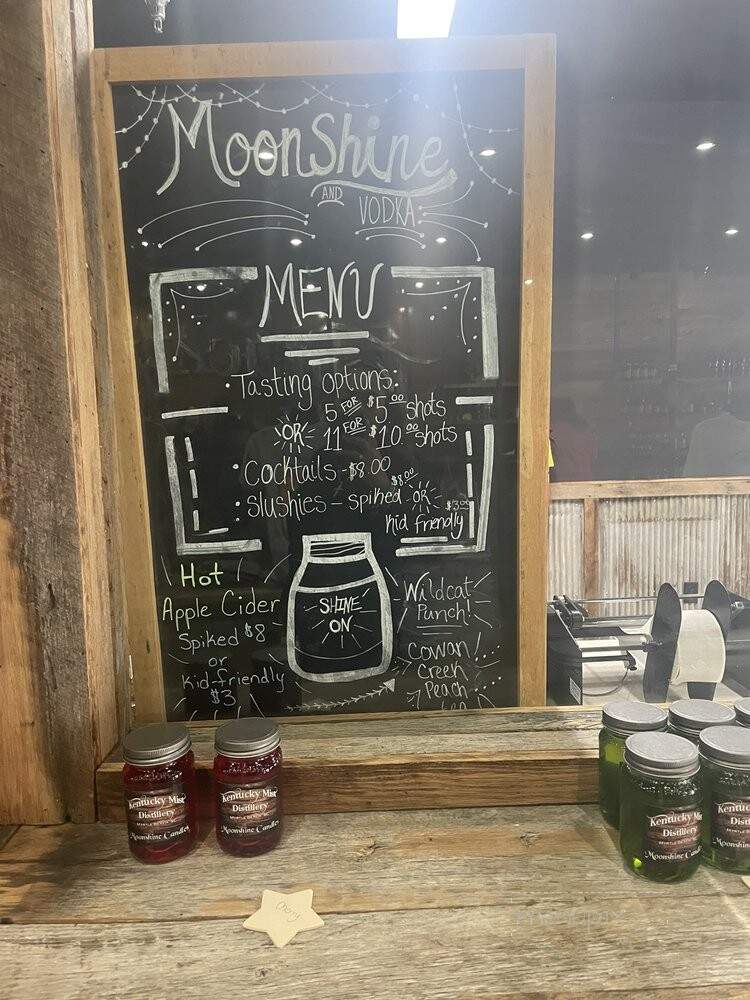 MoonShine
AND VODKA
MENU
• Tasting options:
5 FOR $5.00 shots
OR 11 FOR $10.00 shots
• Cocktails - $8.00
• Slushies - spiked $8.00 OR
Kid friendly $3.00
Hot
Apple Cider
Spiked $8
or
Kid-friendly
$3
SHINE
ON
Wildcat
Punch!
Cowan
Creek
Peach
Kentucky Mist
Distillery
Moonshine Candle
Kentucky Mist
Distillery
Moonshine Candle
Cherry
Kentucky Mist
Distillery
Moonshine Candle
Kentucky Mist
Distillery
Moonshine